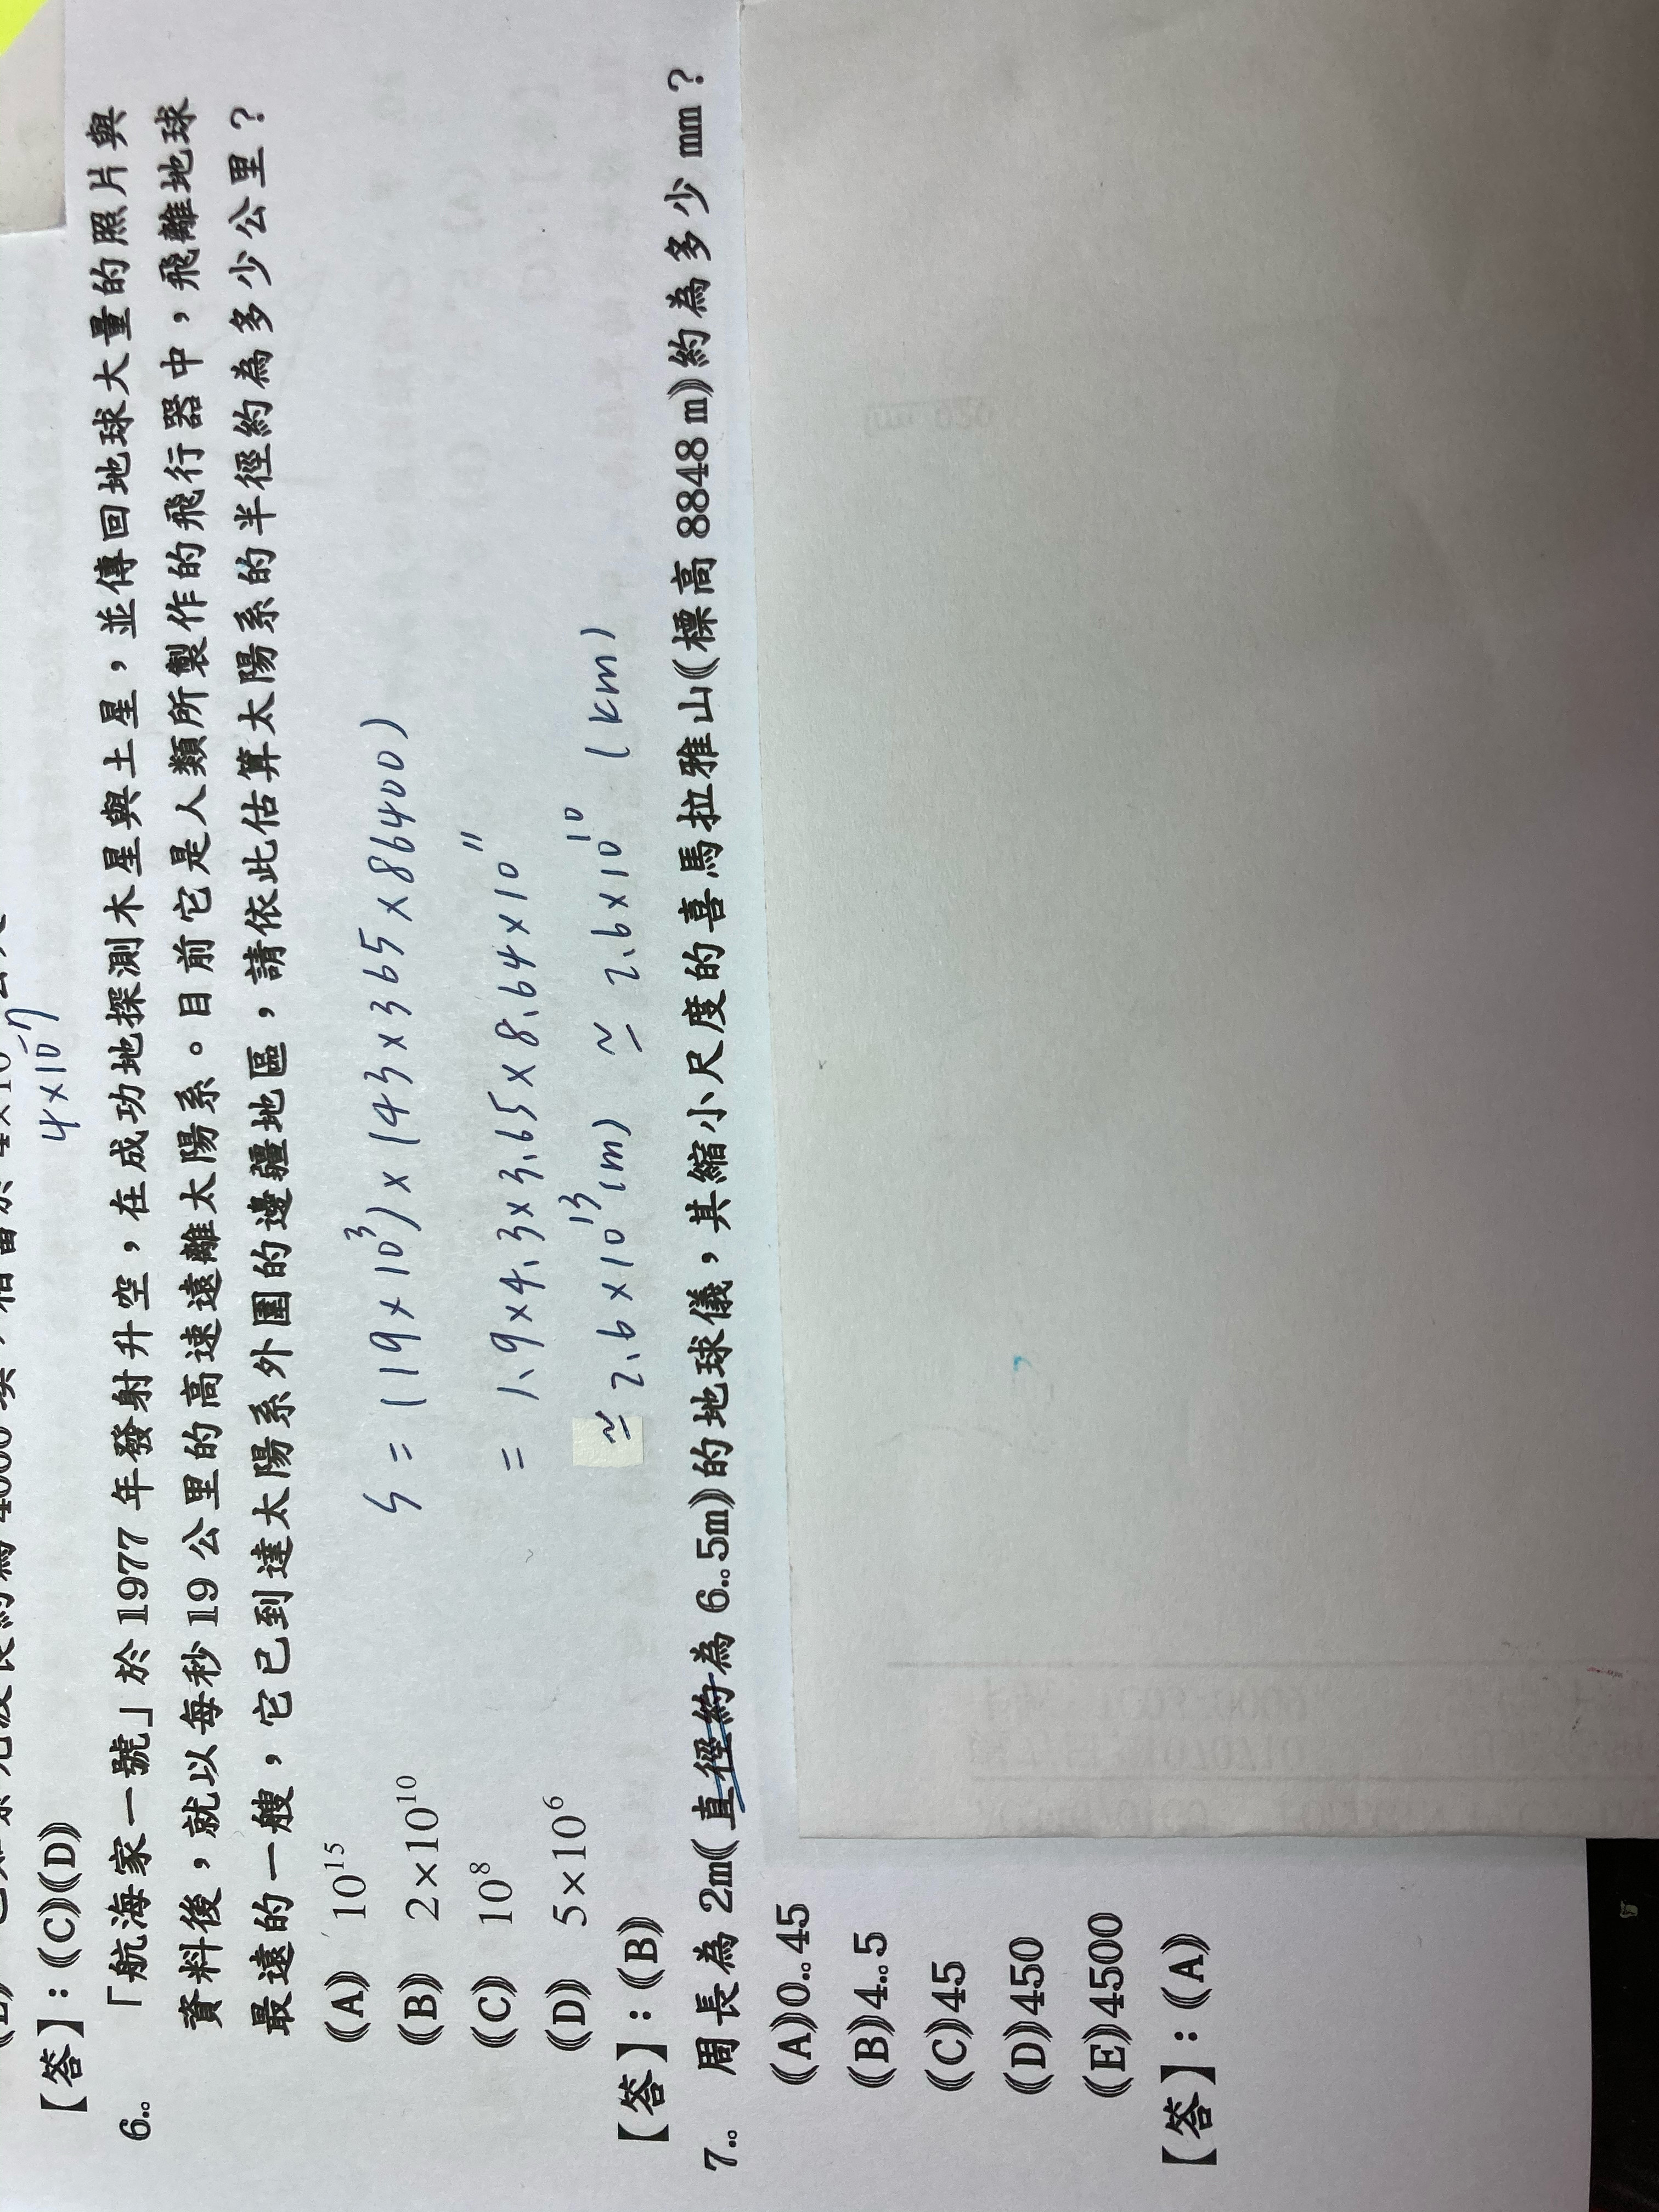 4×10⁻⁷
【答】:(C)(D)
6. 「航海家一號」於 1977 年發射升空,在成功地探測木星與土星,並傳回地球大量的照片與
資料後,就以每秒 19 公里的高速遠離太陽系。目前它是人類所製作的飛行器中,飛離地球
最遠的一艘,它已到達太陽系外圍的邊疆地區,請依此估算太陽系的半徑約為多少公里?
(A) 10¹⁵
S = (19×10³)×(43×365×86400)
(B) 2×10¹⁰
(C) 10⁸
= 1.9×4.3×3.65×8.64×10¹¹
(D) 5×10⁶
≃ 2.6×10¹³(m) ≃ 2.6×10¹⁰ (km)
【答】:(B)
7. 周長為 2m(直徑約為 6.5m)的地球儀,其縮小尺度的喜馬拉雅山(標高 8848 m)約為多少 mm?
(A)0.45
(B)4.5
(C)45
(D)450
(E)4500
【答】:(A)